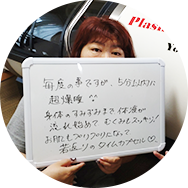 Plase
Yo
毎度の事ですが、5分以内に
超爆睡
身体のすみずみまで体液が
流れ始めて むくみもスッキリ!
お肌もプリプリになって
若返りのタイムカプセル♡